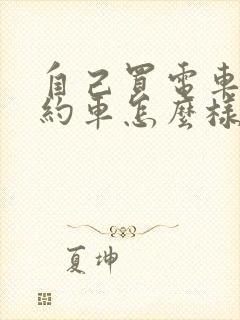 自己買電車
約車怎麼樣
夏坤